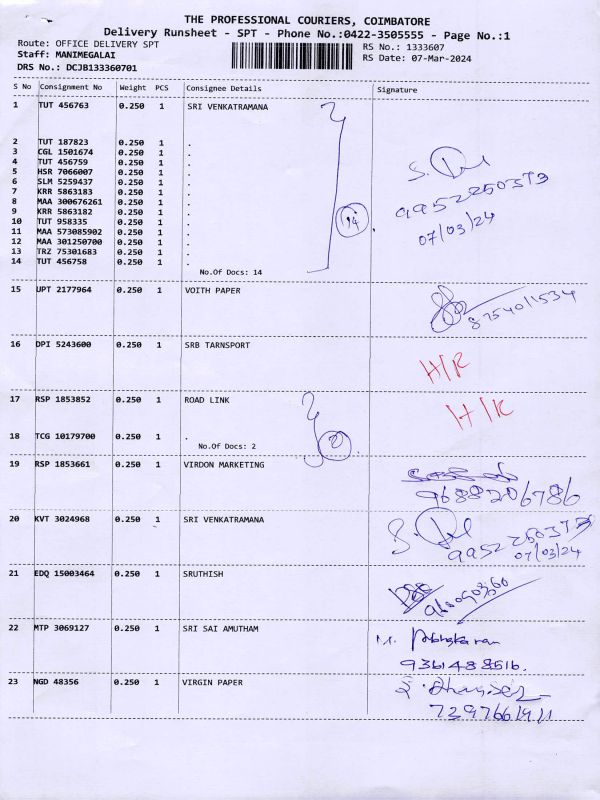 THE PROFESSIONAL COURIERS, COIMBATORE
Delivery Runsheet - SPT - Phone No.:0422-3505555 - Page No.:1
Route: OFFICE DELIVERY SPT
RS No.: 1333607
Staff: MANIMEGALAI
RS Date: 07-Mar-2024
DRS No.: DCJB133360701
S No Consignment No Weight PCS Consignee Details Signature
1 TUT 456763 0.250 1 SRI VENKATRAMANA
2 TUT 187823 0.250 1 .
3 CGL 1501674 0.250 1 .
4 TUT 456759 0.250 1 .
5 HSR 7066007 0.250 1 .
6 SLM 5259437 0.250 1 .
7 KRR 5863183 0.250 1 .
8 MAA 300676261 0.250 1 .
9 KRR 5863182 0.250 1 .
10 TUT 958335 0.250 1 .
11 MAA 573085902 0.250 1 .
12 MAA 301250700 0.250 1 .
13 TRZ 75301683 0.250 1 .
14 TUT 456758 0.250 1 .
No.Of Docs: 14
14
9952250373
07/03/24
15 UPT 2177964 0.250 1 VOITH PAPER
8754011534
16 DPI 5243600 0.250 1 SRB TARNSPORT
H/R
17 RSP 1853852 0.250 1 ROAD LINK
H/R
18 TCG 10179700 0.250 1 .
No.Of Docs: 2
2
19 RSP 1853661 0.250 1 VIRDON MARKETING
9688206786
20 KVT 3024968 0.250 1 SRI VENKATRAMANA
9952250373
07/03/24
21 EDQ 15003464 0.250 1 SRUTHISH
22 MTP 3069127 0.250 1 SRI SAI AMUTHAM
9361488516.
23 NGD 48356 0.250 1 VIRGIN PAPER